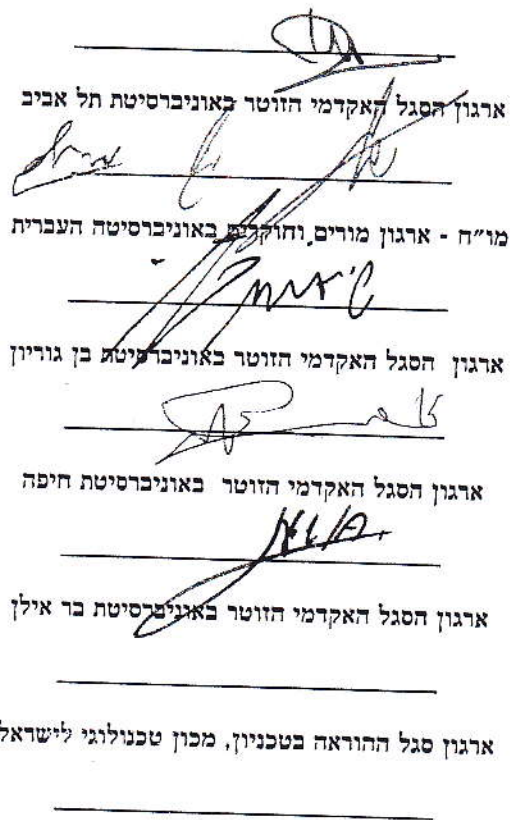 ארגון הסגל האקדמי הזוטר באוניברסיטת תל אביב
מו״ח - ארגון מורים וחוקרים באוניברסיטה העברית
ארגון הסגל האקדמי הזוטר באוניברסיטת בן גוריון
ארגון הסגל האקדמי הזוטר באוניברסיטת חיפה
ארגון הסגל האקדמי הזוטר באוניברסיטת בר אילן
ארגון סגל ההוראה בטכניון, מכון טכנולוגי לישראל